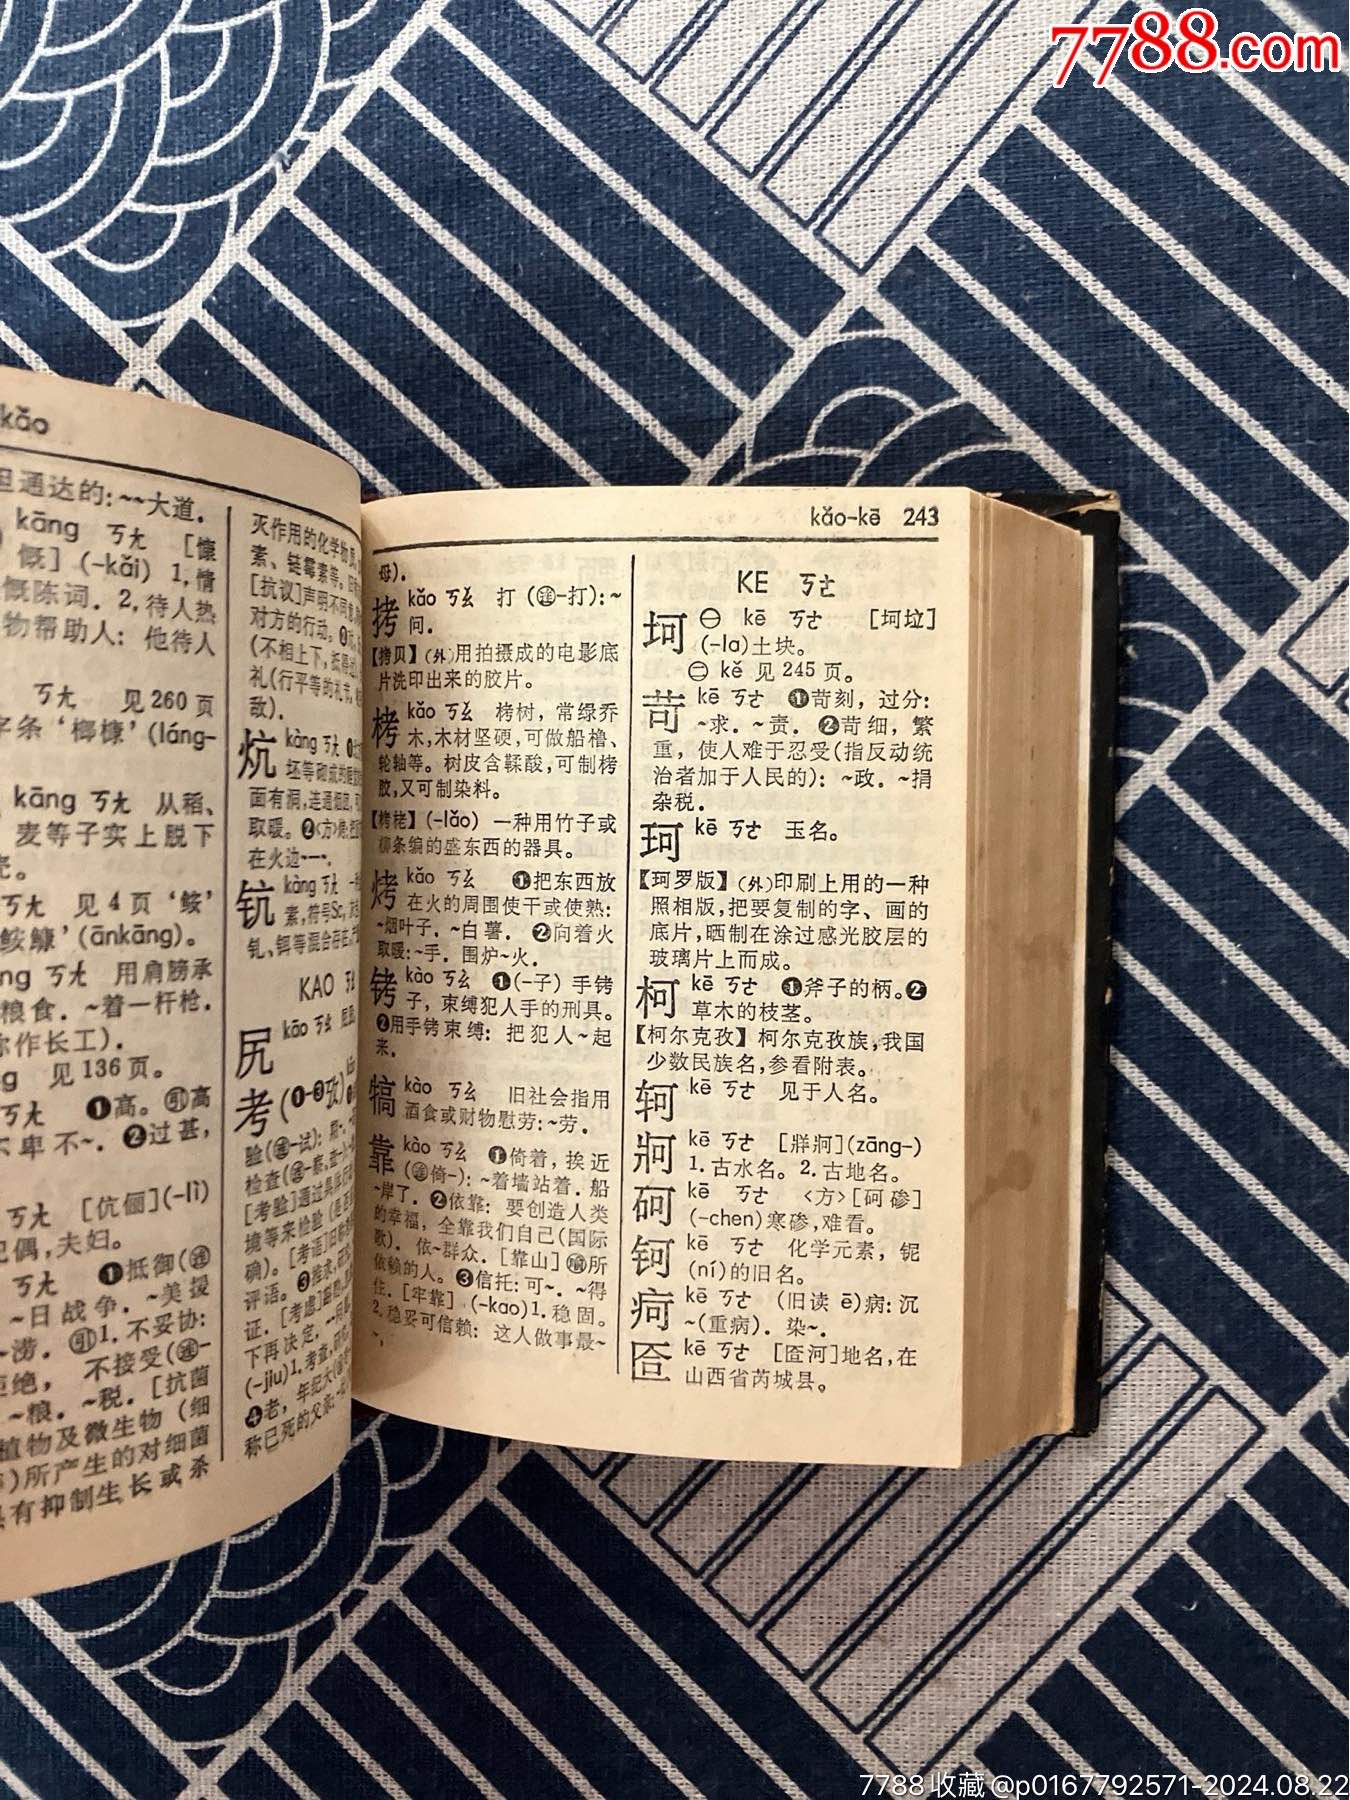 7788.com
-kǎo
坦通达的:~~大道.
kāng ㄎㄤ [慷
慨](-kǎi) 1,情
慨陈词. 2,待人热
物帮助人: 他待人
ㄎㄤ 见260页
字条‘榔槺’(láng-
kāng ㄎㄤ 从稻、
麦等子实上脱下
壳。
ㄎㄤ 见4页‘鮟’
鮟鱇’(ānkāng)。
ㄎㄤ 用肩膀承
粮食. ~着一杆枪.
称作长工).
见136页。
ㄎㄤ ❶高。㊁高
不卑不~. ❷过甚,
ㄎㄤ [伉俪](-lì)
配偶,夫妇。
ㄎㄤ ❶抵御(㊣
~日战争. ~美援
~涝. ㊁1.不妥协:
拒绝, 不接受(㊣-
~粮. ~税. [抗菌
植物及微生物(细
)所产生的对细菌
具有抑制生长或杀
灭作用的化学物质,
素、链霉素等。
[抗议]声明不同意
对方的行动。
(不相上下,抵得
礼(行平等的礼
敌).
炕 kàng ㄎㄤ
坯等砌成的
面有洞,连通烟囱,可
取暖。❷<方>烤:
在火边~一~.
钪 kàng ㄎㄤ
素,符号Sc,
钇、铒等混合存在.
KAO ㄎㄠ
尻 kāo ㄎㄠ
考(❶-❸攷)
验(㊣-试):
检查(㊣-察、
[考验]通过具体行动、
境等来检验(是否
确)。[考语]旧
评语。❸推求,
证. [考虑]
下再决定.
(-jiu)1.考查,研
❹老,年纪大
称已死的父亲:
kǎo-kē 243
母).
拷 kǎo ㄎㄠ 打(㊣-打):~
问.
【拷贝】(外)用拍摄成的电影底
片洗印出来的胶片。
栲 kǎo ㄎㄠ 栲树,常绿乔
木,木材坚硬,可做船橹、
轮轴等。树皮含鞣酸,可制栲
胶,又可制染料。
【栲栳】(-lǎo) 一种用竹子或
柳条编的盛东西的器具。
烤 kǎo ㄎㄠ ❶把东西放
在火的周围使干或使熟:
~烟叶子. ~白薯. ❷向着火
取暖:~手. 围炉~火.
铐 kào ㄎㄠ ❶(-子) 手铐
子, 束缚犯人手的刑具。
❷用手铐束缚: 把犯人~起
来.
犒 kào ㄎㄠ 旧社会指用
酒食或财物慰劳:~劳.
靠 kào ㄎㄠ ❶倚着, 挨近
(㊣倚-): ~着墙站着. 船
~岸了. ❷依靠: 要创造人类
的幸福, 全靠我们自己(国际
歌). 依~群众. [靠山]㊌所
依赖的人。❸信托: 可~. ~得
住. [牢靠] (-kao)1.稳固。
2.稳妥可信赖: 这人做事最~
~.
KE ㄎㄜ
坷 ㊀ kē ㄎㄜ [坷垃]
(-la)土块。
㊁ kě 见245页。
苛 kē ㄎㄜ ❶苛刻, 过分:
~求. ~责. ❷苛细, 繁
重, 使人难于忍受(指反动统
治者加于人民的): ~政. ~捐
杂税.
珂 kē ㄎㄜ 玉名。
【珂罗版】(外)印刷上用的一种
照相版,把要复制的字、画的
底片,晒制在涂过感光胶层的
玻璃片上而成。
柯 kē ㄎㄜ ❶斧子的柄。❷
草木的枝茎。
【柯尔克孜】柯尔克孜族,我国
少数民族名,参看附表。
轲 kē ㄎㄜ 见于人名。
牁 kē ㄎㄜ [牂牁](zāng-)
1.古水名。2.古地名。
砢 kē ㄎㄜ <方>[砢碜]
(-chen)寒碜,难看。
钶 kē ㄎㄜ 化学元素, 铌
(ní)的旧名。
疴 kē ㄎㄜ (旧读 ē)病: 沉
~(重病). 染~.
匼 kē ㄎㄜ [匼河]地名,在
山西省芮城县。
7788收藏@p0167792571-2024.08.22